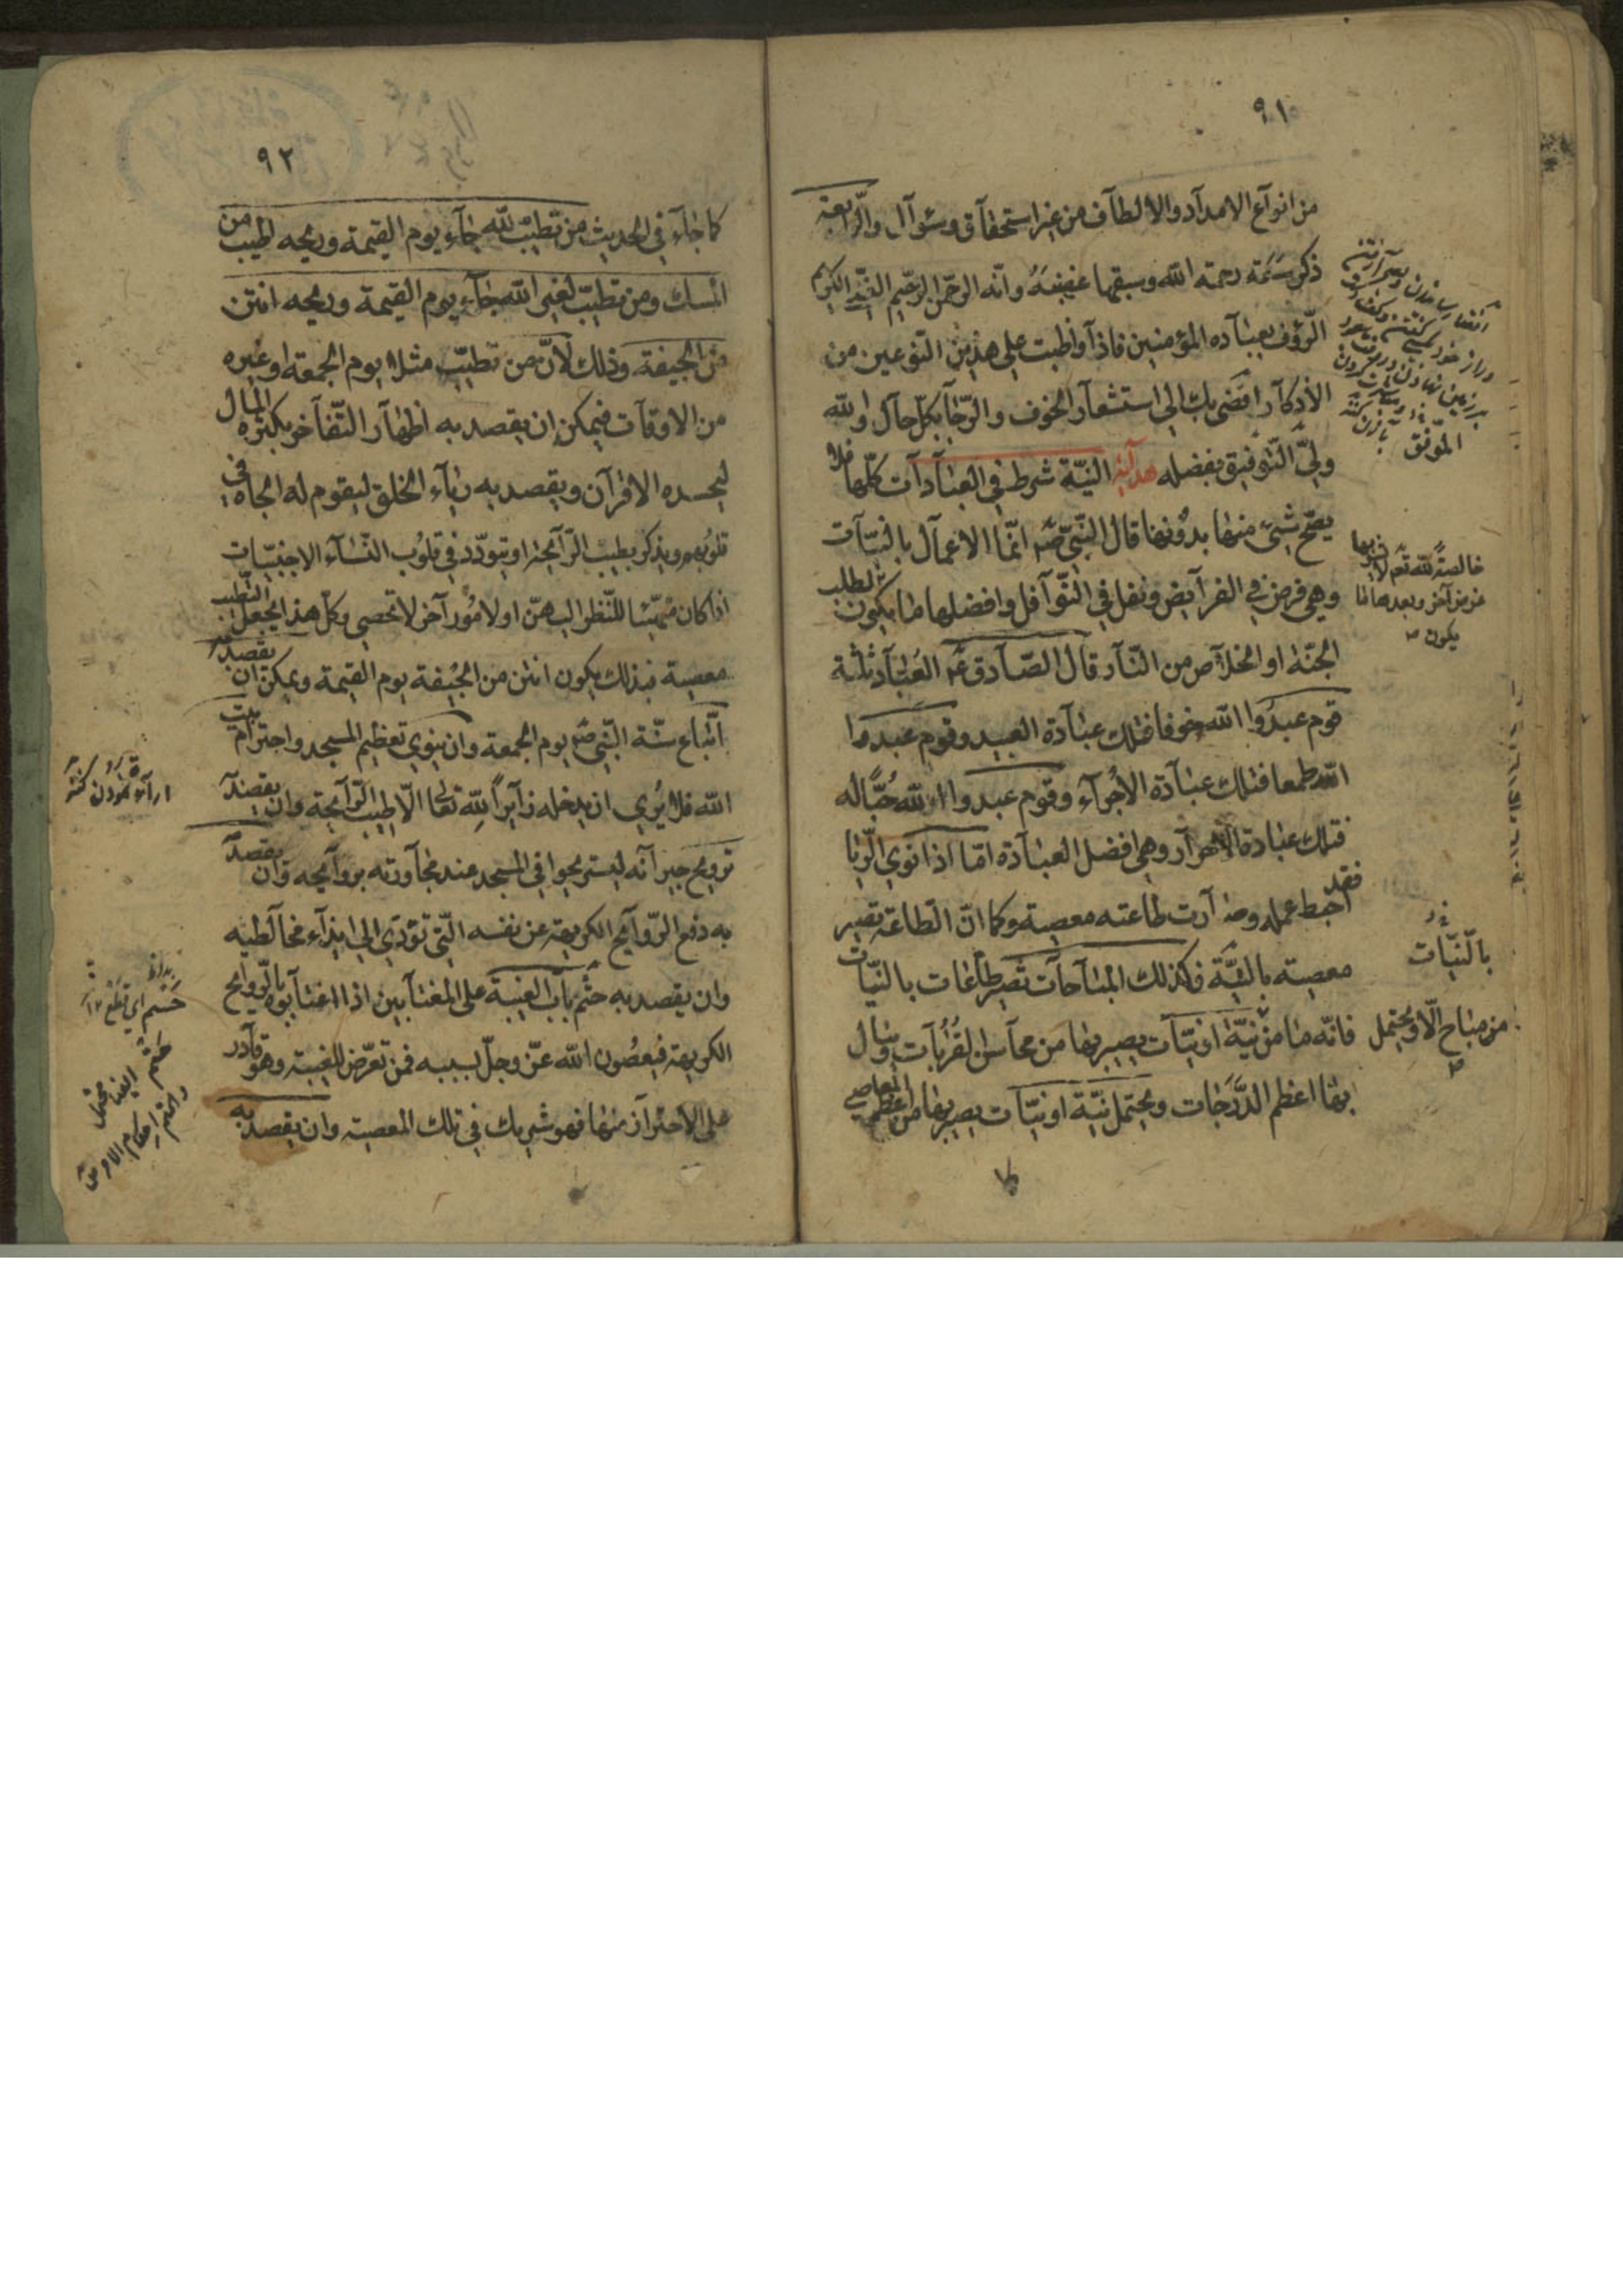 ٩١
من انواع الامداد والالطاف من غير استحقاق وسؤال والرابعة
ذكر سعة رحمة الله وسبقها غضبه وانه الرحمن الرحيم الغني الكريم
الرؤف بعباده المؤمنين فاذا واظبت على هذين النوعين من
الأذكار افضى بك الى استشعار الخوف والرجا بكل حال والله
ولي التوفيق بفضله هداية النية شرط في العبادات كلها فلا
يصح شيئ منها بدونها قال النبي صم انما الاعمال بالنيات
وهي فرض في الفرايض ونفل في النوافل وافضلها ما يكون لطلب
الجنة او الخلاص من النار قال الصادق عم العباد ثلثة
قوم عبدوا الله خوفا فتلك عبادة العبيد وقوم عبدوا
الله طمعا فتلك عبادة الأجراء وقوم عبدوا الله حبا له
فتلك عبادة الاحرار وهي افضل العبادة اما اذا نوى الريا
فقد احبط عمله وصارت طاعته معصية وكما ان الطاعة تصير
معصية بالنية فكذلك المباحات تصير طاعات بالنيات
فانه ما من نية او نيات يصير بها من محاسن القربات وينال
بها اعظم الدرجات ويحتمل نية او نيات يصير بها من اعظم المعاصي
الموفق
خالصة لله تعم لا يشوبها
غرض آخر وبعدها ما
يكون
بالنيات
من مباح الا ويحتمل
٩٢
كما جاء في الحديث من تطيب لله جاء يوم القيمة وريحه اطيب من
المسك ومن تطيب لغير الله جاء يوم القيمة وريحه انتن
من الجيفة وذلك لأن من تطيب مثلا يوم الجمعة او غيره
من الاوقات فيمكن ان يقصد به اظهار التفاخر بكثرة المال
ليحسده الاقران ويقصد به رياء الخلق ليقوم له الجاه في
قلوبهم ويذكر بطيب الرايحة او يتودد في قلوب النساء الاجنبيات
اذا كان مهيئا للنظر اليهن او لامور آخر لا تحصى وكل هذا يجعل التطيب
معصية فبذلك يكون انتن من الجيفة يوم القيمة ويمكن ان يقصد
اتباع سنة النبي صم يوم الجمعة وان ينوي تعظيم المسجد واحترام بيت
الله فلا يرى ان يدخله زايرا لله تعالى الا طيب الرايحة وان يقصد
ترويح جيرانه ليستريحوا في المسجد عند مجاورته بروايحه وان يقصد
به دفع الروايح الكريهة عن نفسه التي تؤدى الى ايذاء مخالطيه
وان يقصد به حسم باب الغيبة على المغتابين اذا اغتابوه بالروايح
الكريهة فيعصون الله عز وجل بسببه فمن تعرض للغيبة وهو قادر
على الاحتراز منها فهو شريك في تلك المعصية وان يقصد به
حسم اي قطع